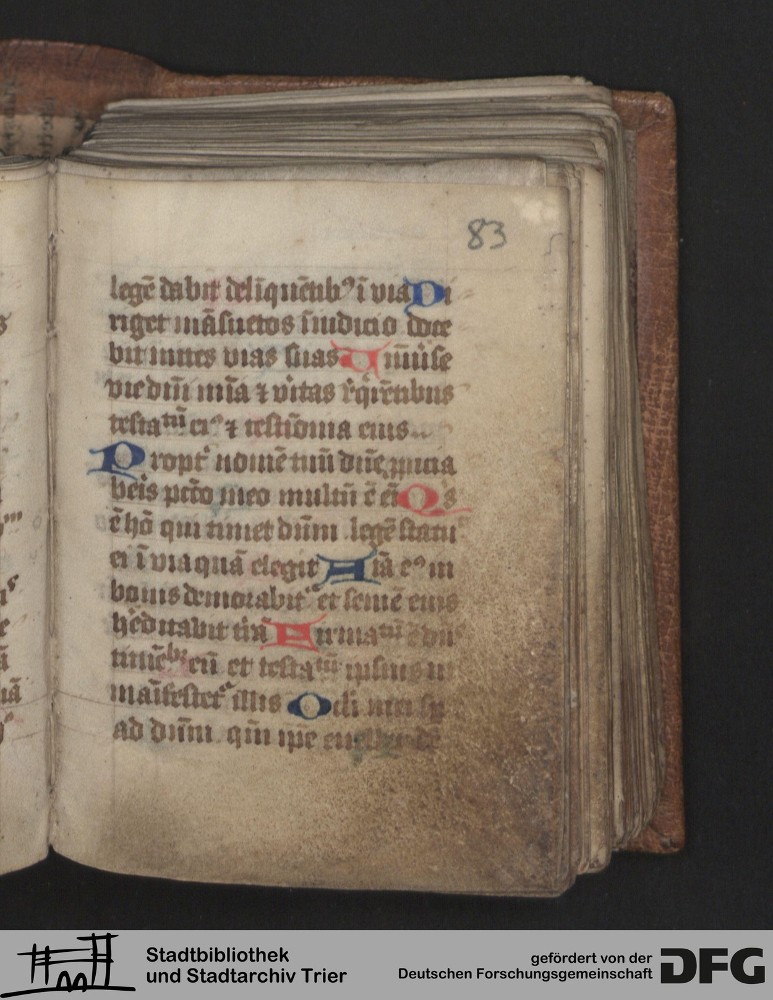 83
legē dabit delīquētib⁹ ī via Di
riget māsuetos ī iudicio doce
bit mites vias suas Uniūse
vie dñi mīa ⁊ vītas reqͥrētibus
testaᵗᵘ̄ ei⁹ ⁊ testiōnia eius
Propt̾ nomē tuū dñe ꝓpicia
beis pcc̄o meo multū ē eī Qͥs
ē hō qui timet dūm legē statu
ei ī via quā elegit Aīa e⁹ in
bonis demorabit᷑ et semē eius
h̾editabit t̾rā Firmaᵗᵘ̄ ē dñs
timētibꝰ eū et testaᵗᵘ̄ ipsius ut
maīfestet᷑ illis Oc̄li mei sp̄
ad dūm qm̄ ip̄e
Stadtbibliothek
und Stadtarchiv Trier
gefördert von der
Deutschen Forschungsgemeinschaft
DFG